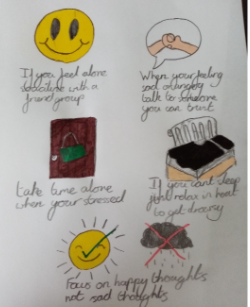 If you feel alone
socialise with a
friend group
When your feeling
sad or lonely
talk to someone
you can trust
take time alone
when your stressed
If you can't sleep
just relax in bed
to get drowsy
Focus on happy thoughts
not sad thoughts